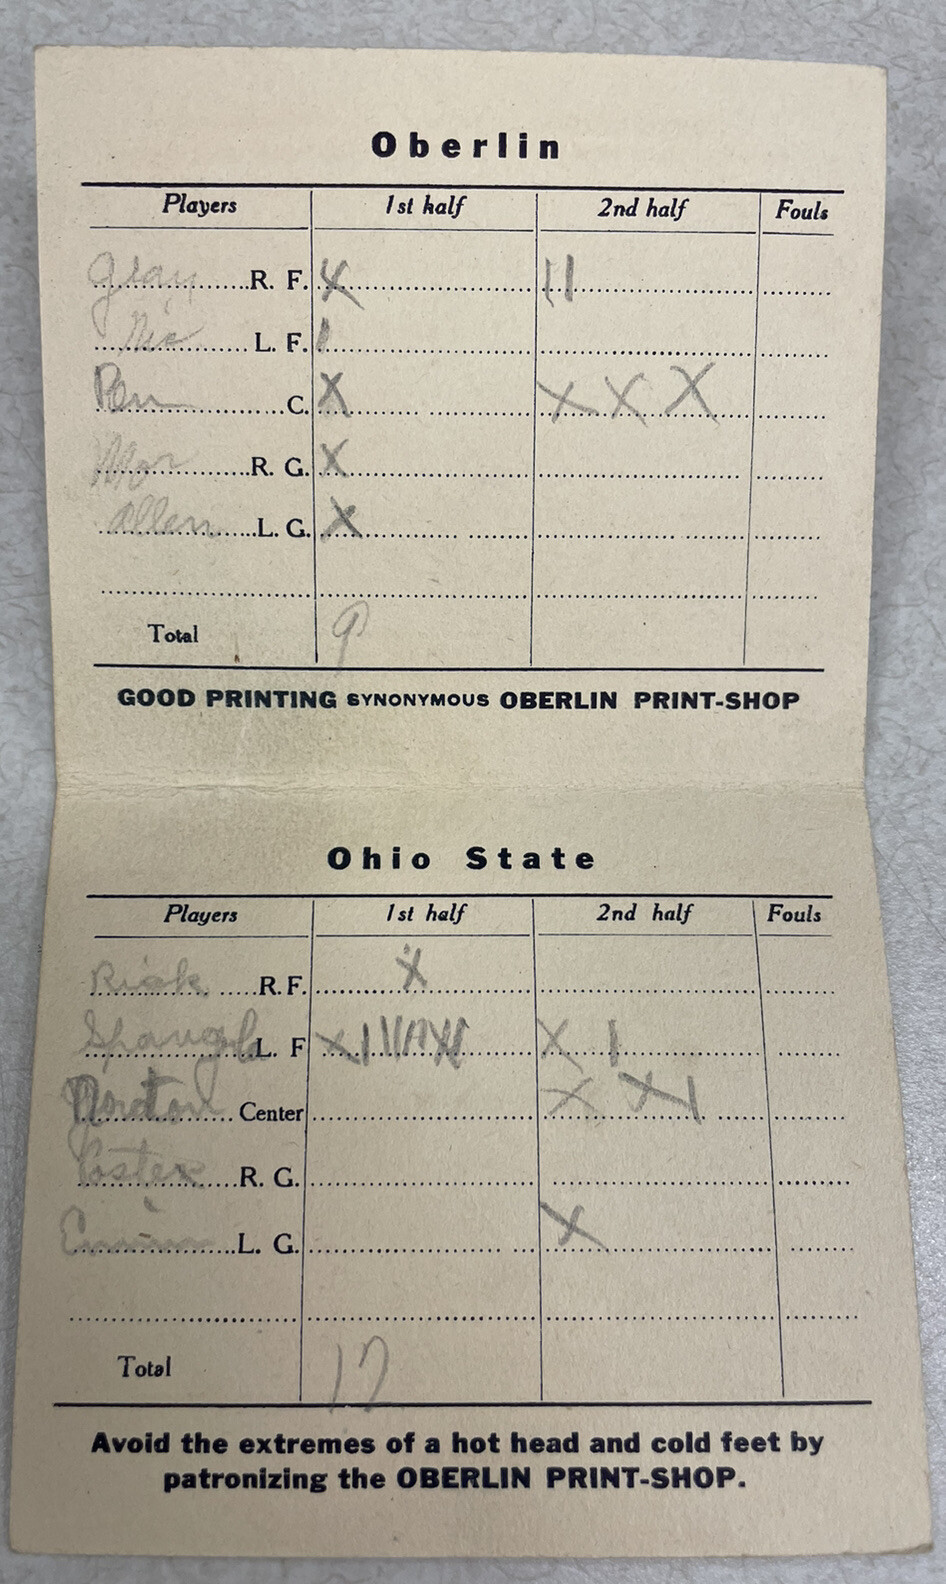 Oberlin
Players 1st half 2nd half Fouls
Gray R. F. X 11
Nic L. F. 1
Pen C. X X X X
Mor R. G. X
Allen L. G. X
Total 9
GOOD PRINTING SYNONYMOUS OBERLIN PRINT-SHOP
Ohio State
Players 1st half 2nd half Fouls
R. F. X
L. F X 1
Norton Center X X 1
R. G.
L. G. X
Total 17
Avoid the extremes of a hot head and cold feet by
patronizing the OBERLIN PRINT-SHOP.